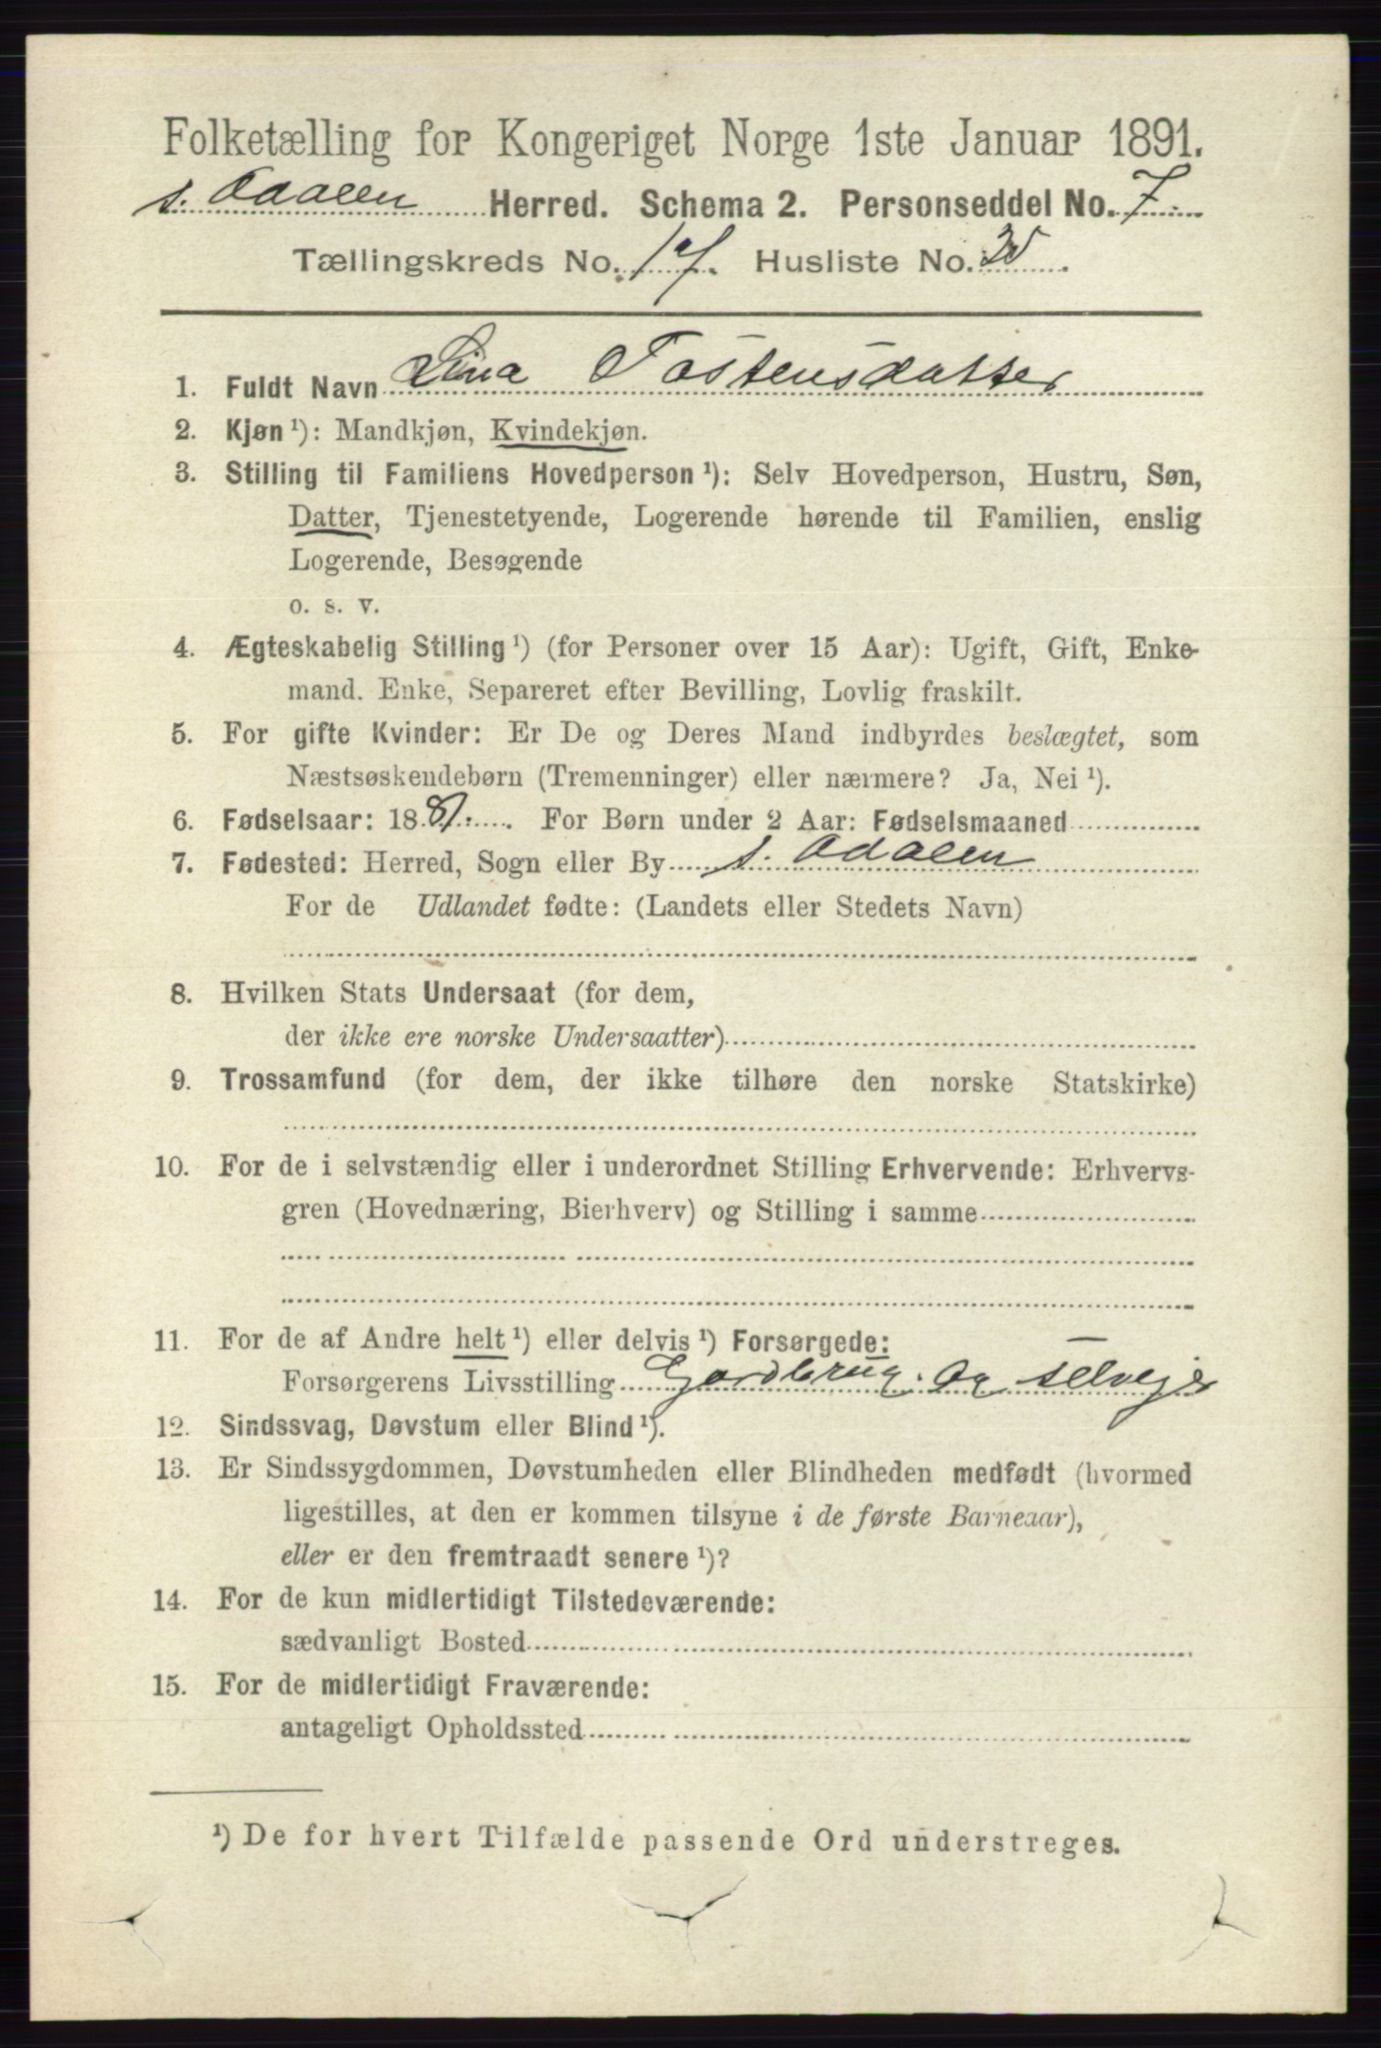 Folketælling for Kongeriget Norge 1ste Januar 1891.
s. Odalen Herred. Schema 2. Personseddel No. 7
Tællingskreds No. Husliste No.
1. Fuldt Navn Lina Tostensdatter
2. Kjøn ¹): Mandkjøn, Kvindekjøn.
3. Stilling til Familiens Hovedperson ¹): Selv Hovedperson, Hustru, Søn,
Datter, Tjenestetyende, Logerende hørende til Familien, enslig
Logerende, Besøgende
o. s. v.
4. Ægteskabelig Stilling ¹) (for Personer over 15 Aar): Ugift, Gift, Enke-
mand. Enke, Separeret efter Bevilling, Lovlig fraskilt.
5. For gifte Kvinder: Er De og Deres Mand indbyrdes beslægtet, som
Næstsøskendebørn (Tremenninger) eller nærmere? Ja, Nei ¹).
6. Fødselsaar: 1881. For Børn under 2 Aar: Fødselsmaaned
7. Fødested: Herred, Sogn eller By s. Odalen
For de Udlandet fødte: (Landets eller Stedets Navn)
8. Hvilken Stats Undersaat (for dem,
der ikke ere norske Undersaatter)
9. Trossamfund (for dem, der ikke tilhøre den norske Statskirke)
10. For de i selvstændig eller i underordnet Stilling Erhvervende: Erhvervs-
gren (Hovednæring, Bierhverv) og Stilling i samme
11. For de af Andre helt ¹) eller delvis ¹) Forsørgede:
Forsørgerens Livsstilling Gardbrug. og selvejer
12. Sindssvag, Døvstum eller Blind ¹).
13. Er Sindssygdommen, Døvstumheden eller Blindheden medfødt (hvormed
ligestilles, at den er kommen tilsyne i de første Barneaar),
eller er den fremtraadt senere ¹)?
14. For de kun midlertidigt Tilstedeværende:
sædvanligt Bosted
15. For de midlertidigt Fraværende:
antageligt Opholdssted
¹) De for hvert Tilfælde passende Ord understreges.